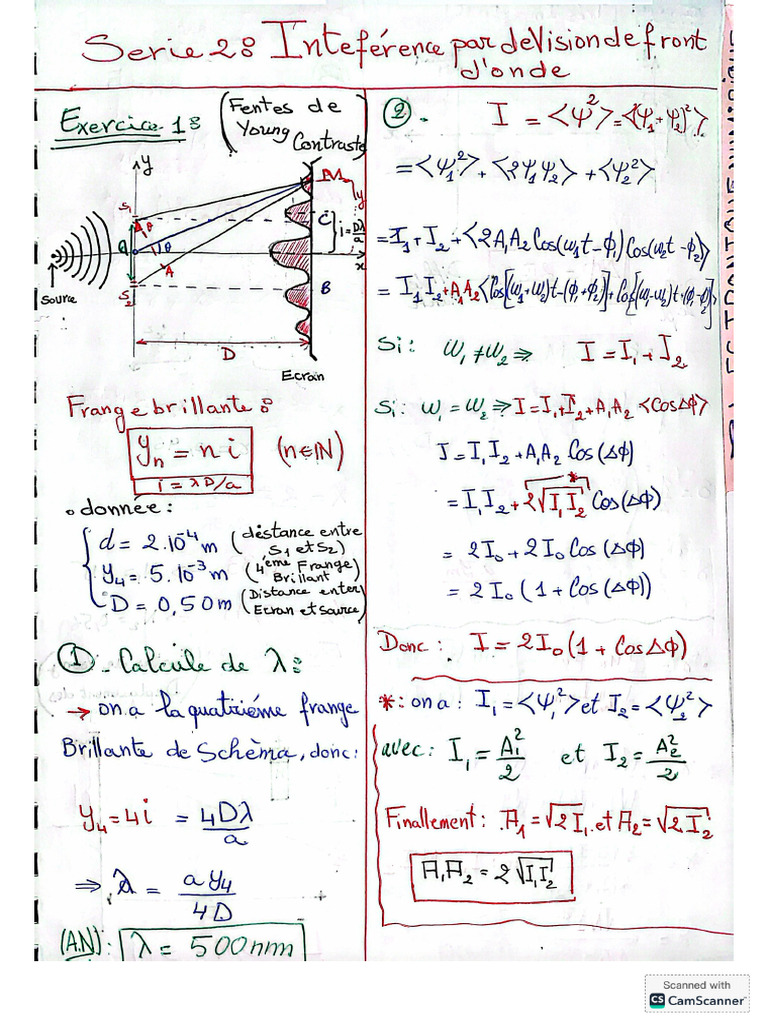 Serie 2: Inteférence par deVision de front
d'onde
Exercice 1:
(Fentes de
Young
Contraste)
y
M
y
S1
θ
C
i = Dλ/a
a
θ
x
A
Source
S2
B
D
Ecran
Frange brillante :
yn = n i (n∈IN)
i = λD/a
• donnée :
d = 2.10⁻⁴ m (distance entre
S1 et S2)
y4 = 5.10⁻³ m (4ème Frange
Brillant)
D = 0,50m (Distance enter
Ecran et source)
① - Calcule de λ :
→ on a la quatriéme frange
Brillante de Schèma, donc:
y4 = 4i = 4Dλ/a
⇒ λ = a y4/4D
(A.N): λ = 500nm
②. I = <Ψ²> = <(Ψ1+Ψ2)²>
= <Ψ1²> + <2Ψ1Ψ2> + <Ψ2²>
= I1 + I2 + <2A1A2 Cos(ω1t-ϕ1) Cos(ω2t-ϕ2)>
= I1 I2 + A1A2 <Cos[(ω1+ω2)t-(ϕ1+ϕ2)] + Cos[(ω1-ω2)t+(ϕ1-ϕ2)]>
Si: ω1 ≠ ω2 ⇒ I = I1 + I2
Si: ω1 = ω2 ⇒ I = I1 + I2 + A1A2 <CosΔϕ>
I = I1 I2 + A1A2 Cos(Δϕ)
*
= I1 I2 + 2√I1I2 Cos(Δϕ)
= 2I0 + 2I0 Cos(Δϕ)
= 2I0 (1 + Cos(Δϕ))
Donc: I = 2I0 (1 + CosΔϕ)
*: on a : I1 = <Ψ1²> et I2 = <Ψ2²>
avec: I1 = A1²/2 et I2 = A2²/2
Finallement: A1 = √2I1 et A2 = √2I2
A1A2 = 2√I1I2
Scanned with
CS CamScanner